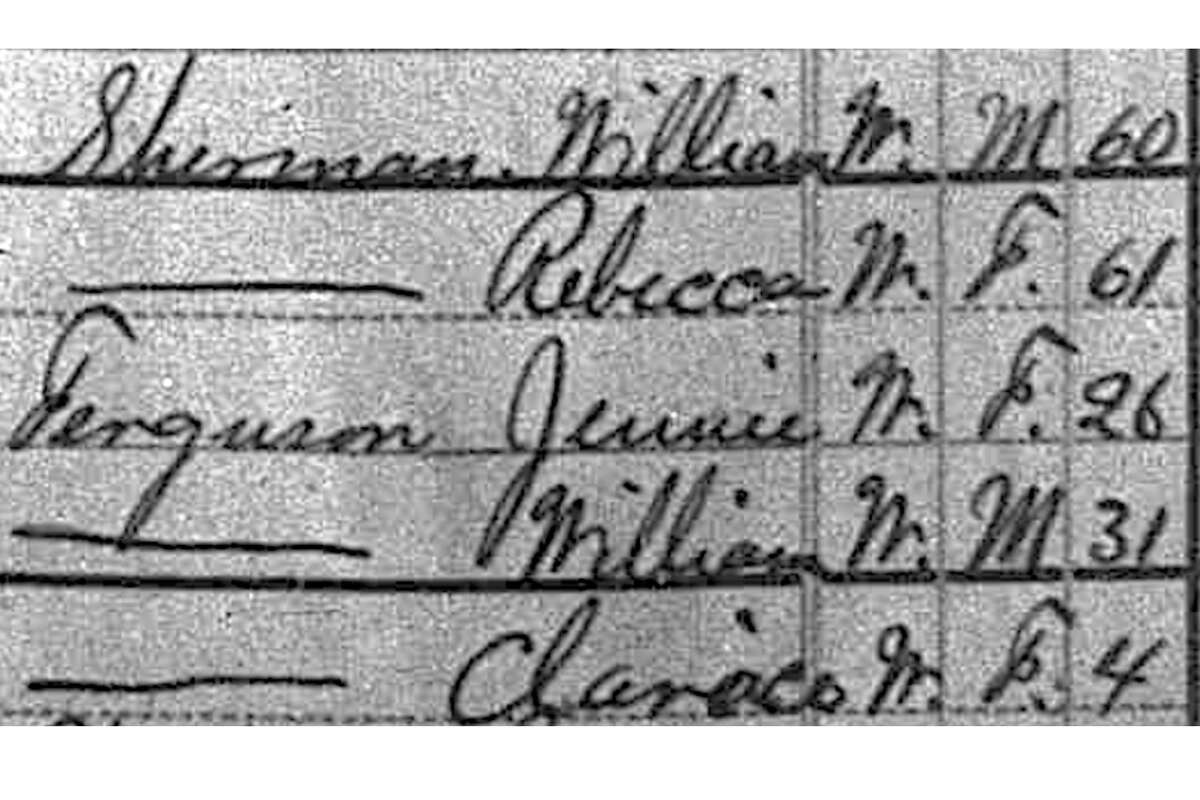 Sherman. William W. M 60
— Rebecca W. F. 61
Ferguson Jennie W. F. 26
— William W. M 31
— W. F. 4